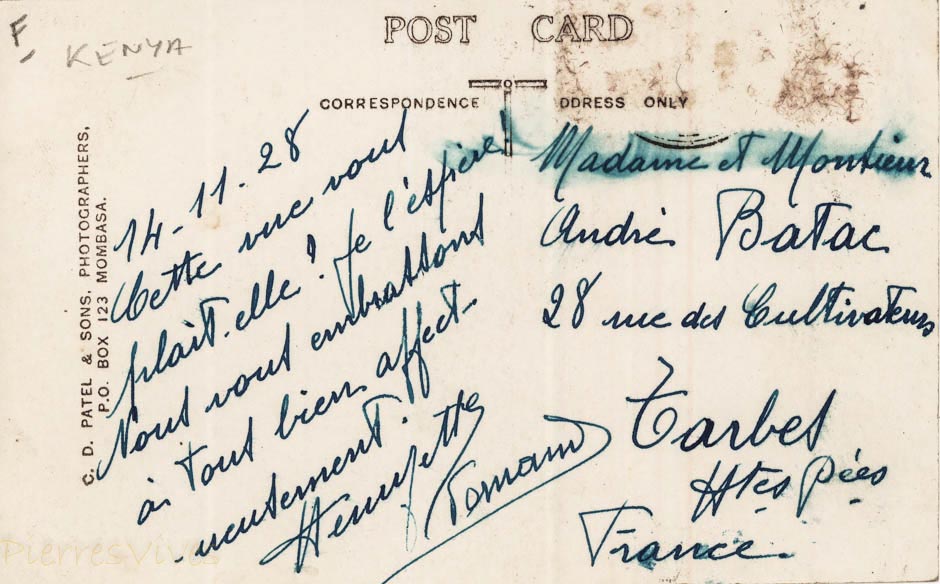 F
KENYA
POST CARD
CORRESPONDENCE
DDRESS ONLY
C. D. PATEL & SONS, PHOTOGRAPHERS,
P.O. BOX 123 MOMBASA.
14-11-28
Cette vue vous
plaît-elle? Je l'espère!
Nous vous embrassons
à tous bien affect-
-ueusement.
Henriette
Madame et Monsieur
André Batac
28 rue des Cultivateurs
Tarbes
Htes Pées
France.
PierresVives